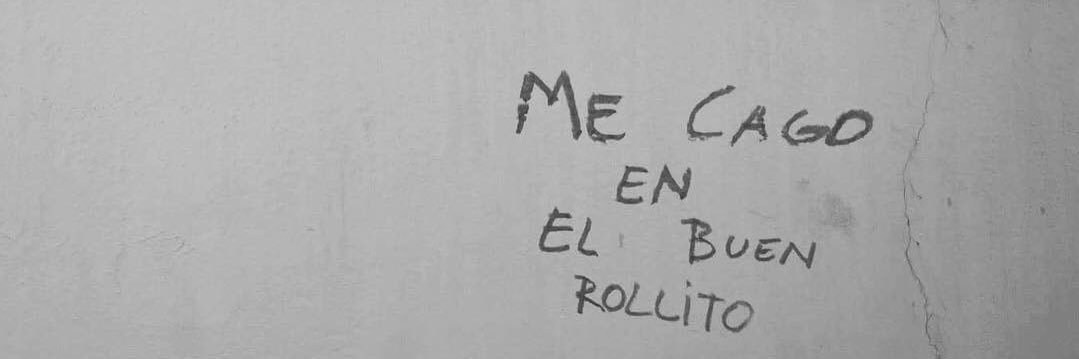 ME CAGO
EN
EL BUEN
ROLLiTO